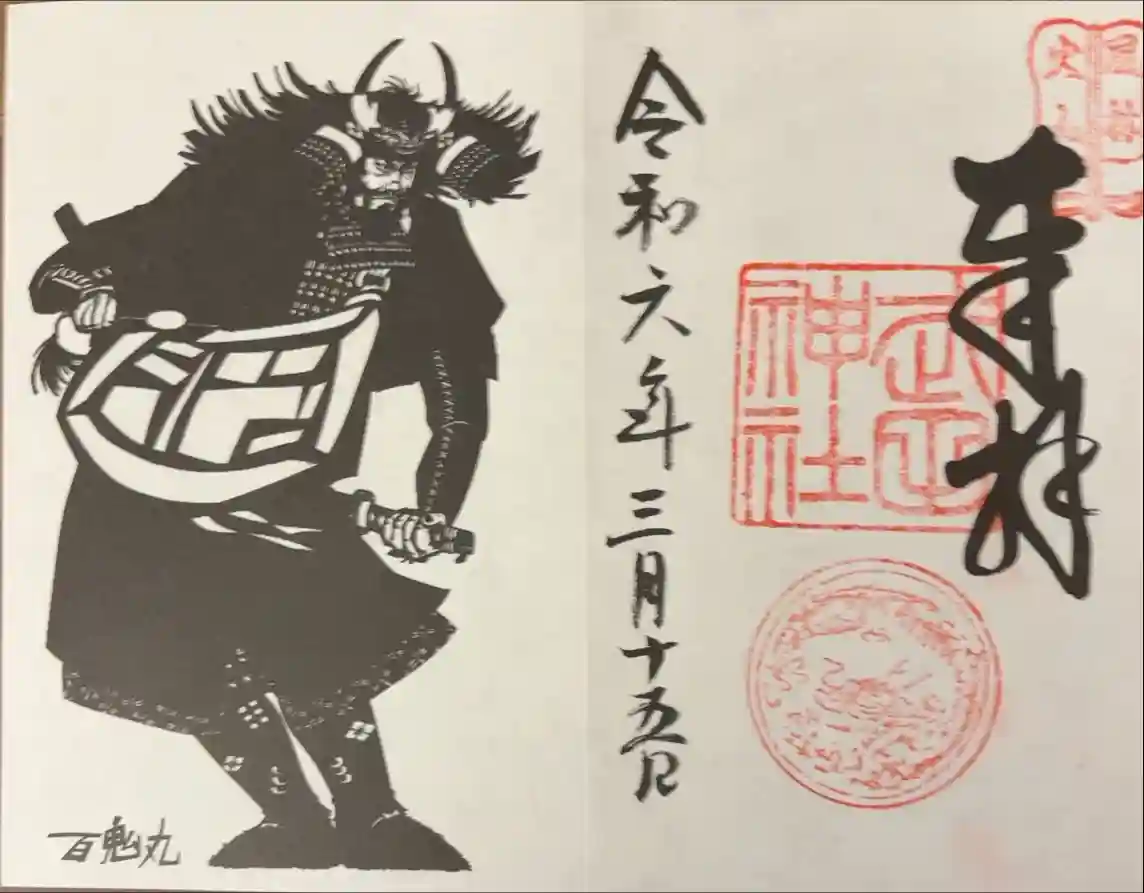 奉拝
武田神社
令和六年三月十五日
百鬼丸